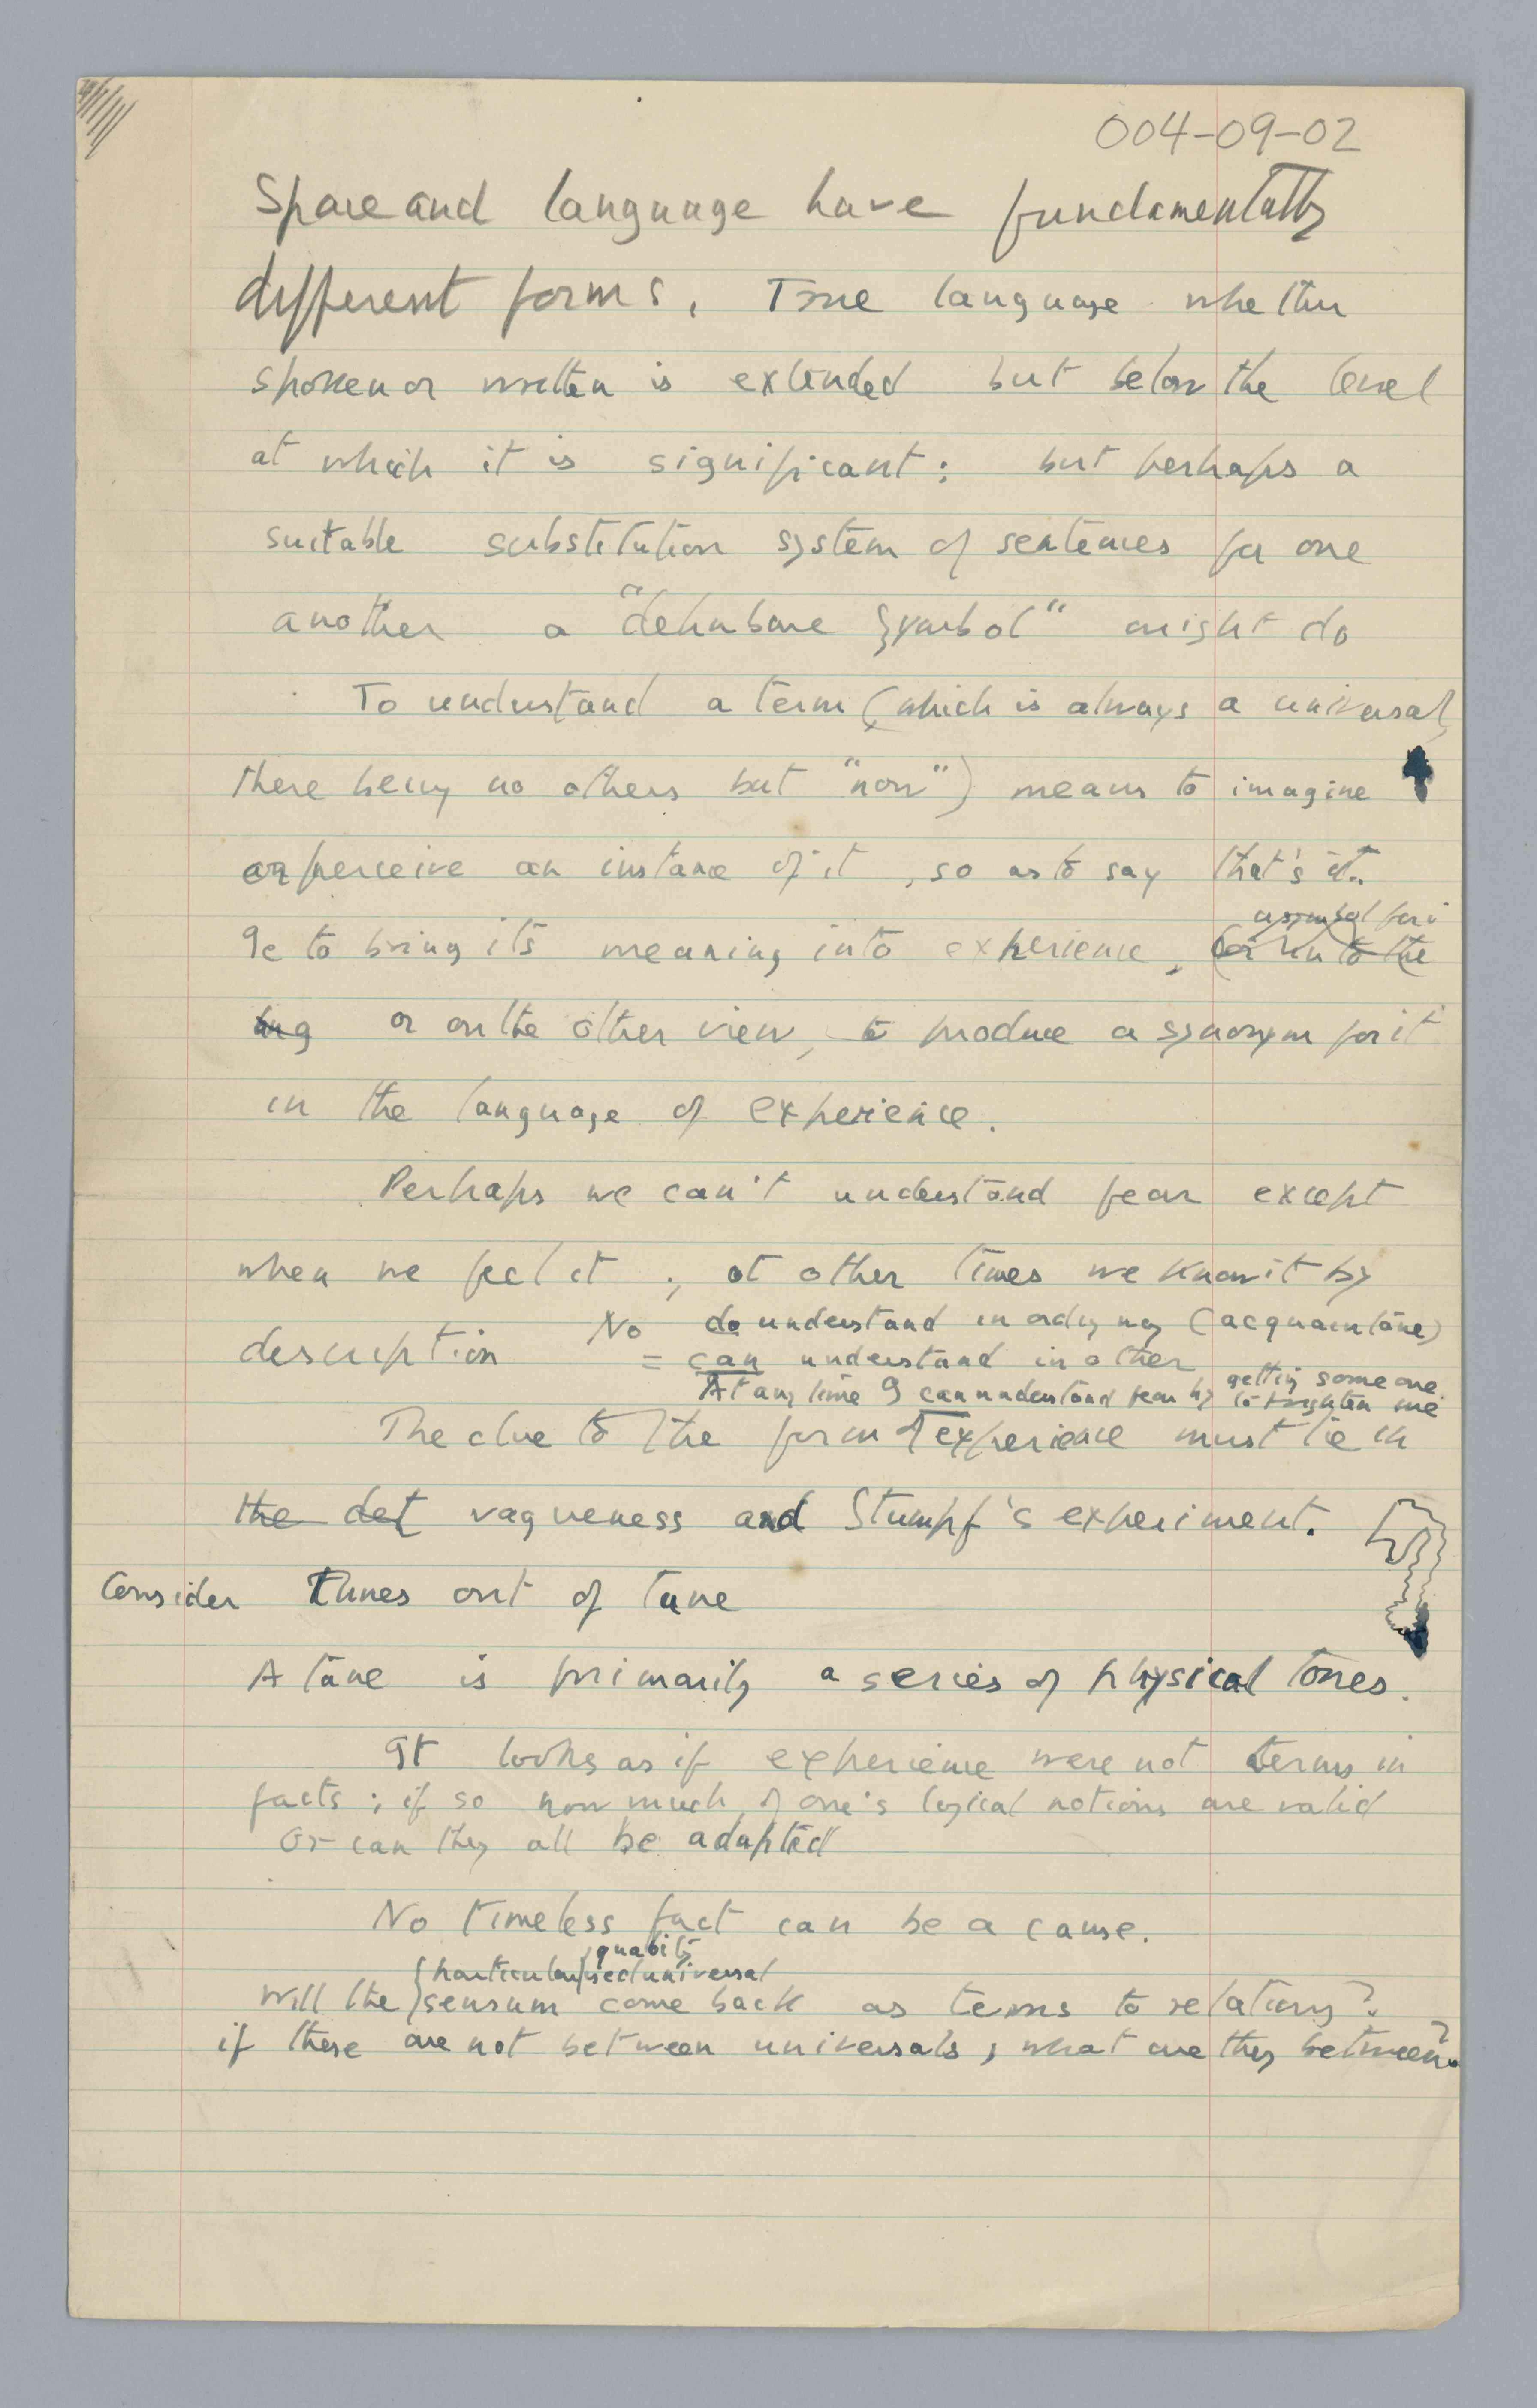 004-09-02
Space and language have fundamentally
different forms. True language whether
spoken or written is extended but below the level
at which it is significant; but perhaps a
suitable substitution system of sentences for one
another a " symbol" might do
To understand a term (which is always a universal,
there being no others but "now") means to imagine
or perceive an instance of it, so as to say that's it.
Ie to bring its meaning into experience, (or into the
a symbol for i
ing or on the other view, to produce a synonym for it
in the language of experience.
Perhaps we can't understand fear except
when we feel it; at other times we know it by
description No do understand in ordy way (acquaintance)
= can understand in other
At any time I can understand fear by getting someone
to frighten me
The clue to the form of experience must lie in
the det vagueness and Stumpf's experiment.
Consider Tunes out of tune
A tune is primarily a series of physical tones.
It looks as if experience were not terms in
facts; if so how much of one's logical notions are valid
Or can they all be adapted
No timeless fact can be a cause.
quality
particularised universal
Will the sensum come back as terms to relations?
if these are not between universals, what are they between?